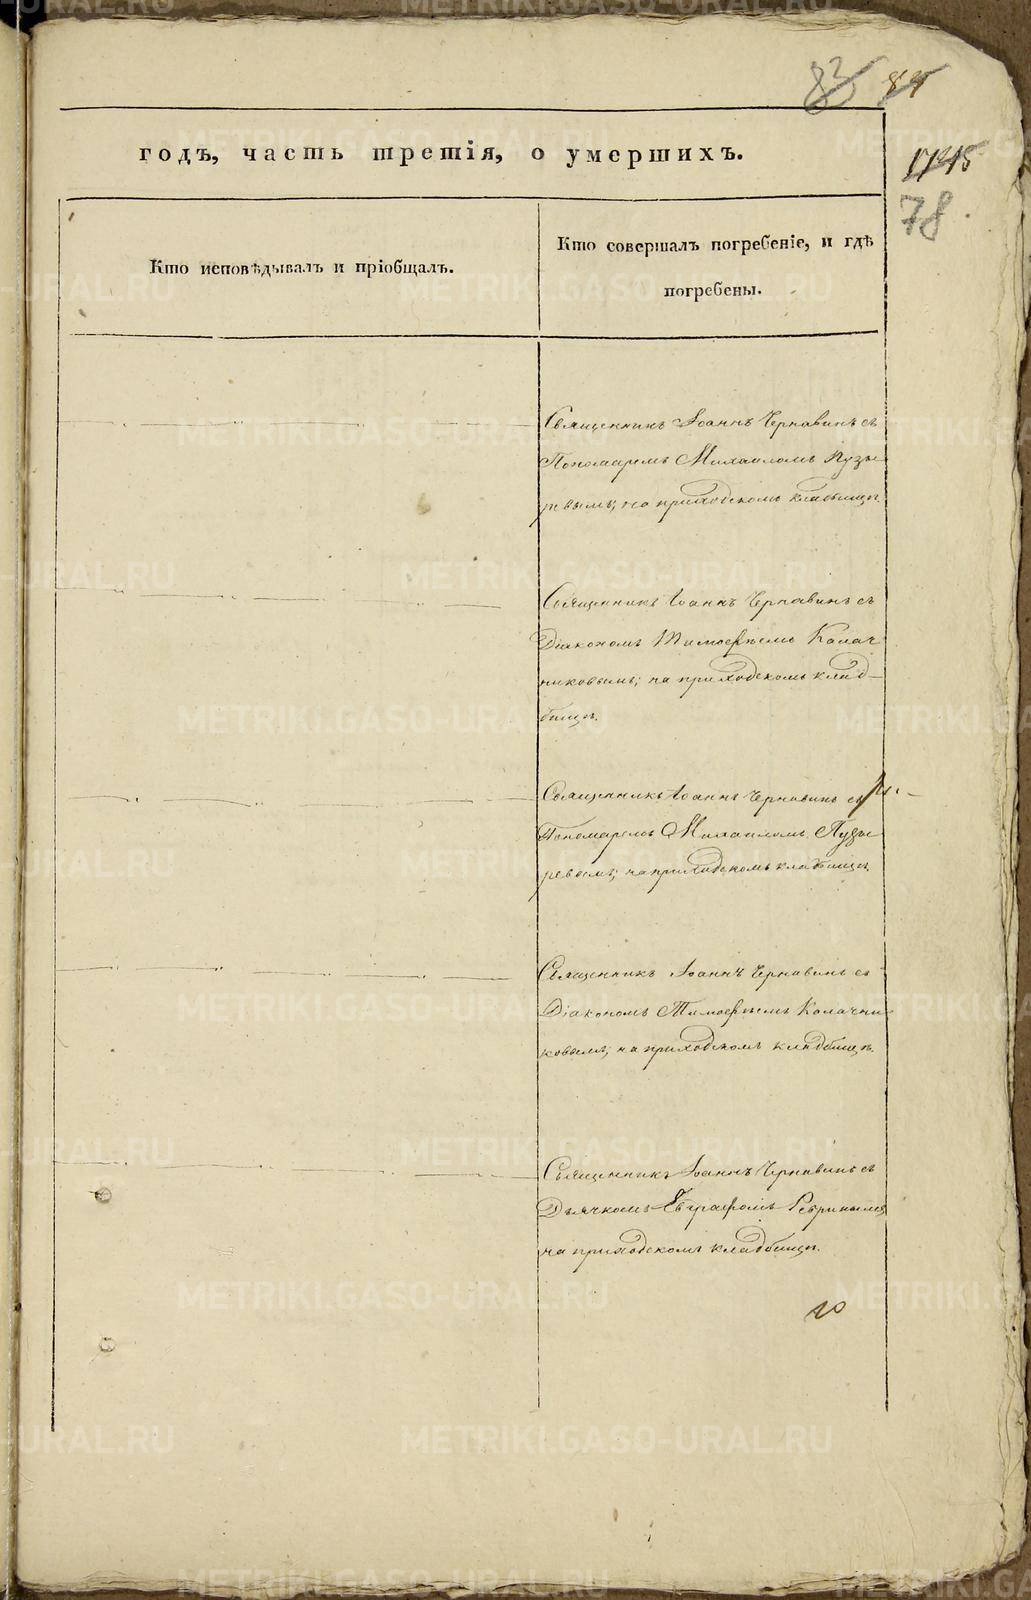 83 84
годъ, часть третія, о умершихъ.
1715
78.
Кто исповѣдывалъ и пріобщалъ.
Кто совершалъ погребеніе, и гдѣ
погребены.
Священникъ Іоаннъ Чернавинъ съ
Пономаремъ Михаиломъ Пузы
ревымъ; на приходскомъ кладбищѣ.
Священникъ Іоаннъ Чернавинъ съ
Діакономъ Тимофѣемъ Колач
никовымъ; на приходскомъ клад-
бищѣ.
Священникъ Іоаннъ Чернавинъ съ
Пономаремъ Михаиломъ Пузы
ревымъ; на приходскомъ кладбищѣ.
Священникъ Іоаннъ Чернавинъ съ
Діакономъ Тимофѣемъ Колачни
ковымъ; на приходскомъ кладбищѣ.
Священникъ Іоаннъ Чернавинъ съ
Дьячкомъ Евграфомъ
на приходскомъ кладбищѣ.
METRIKI.GASO-URAL.RU